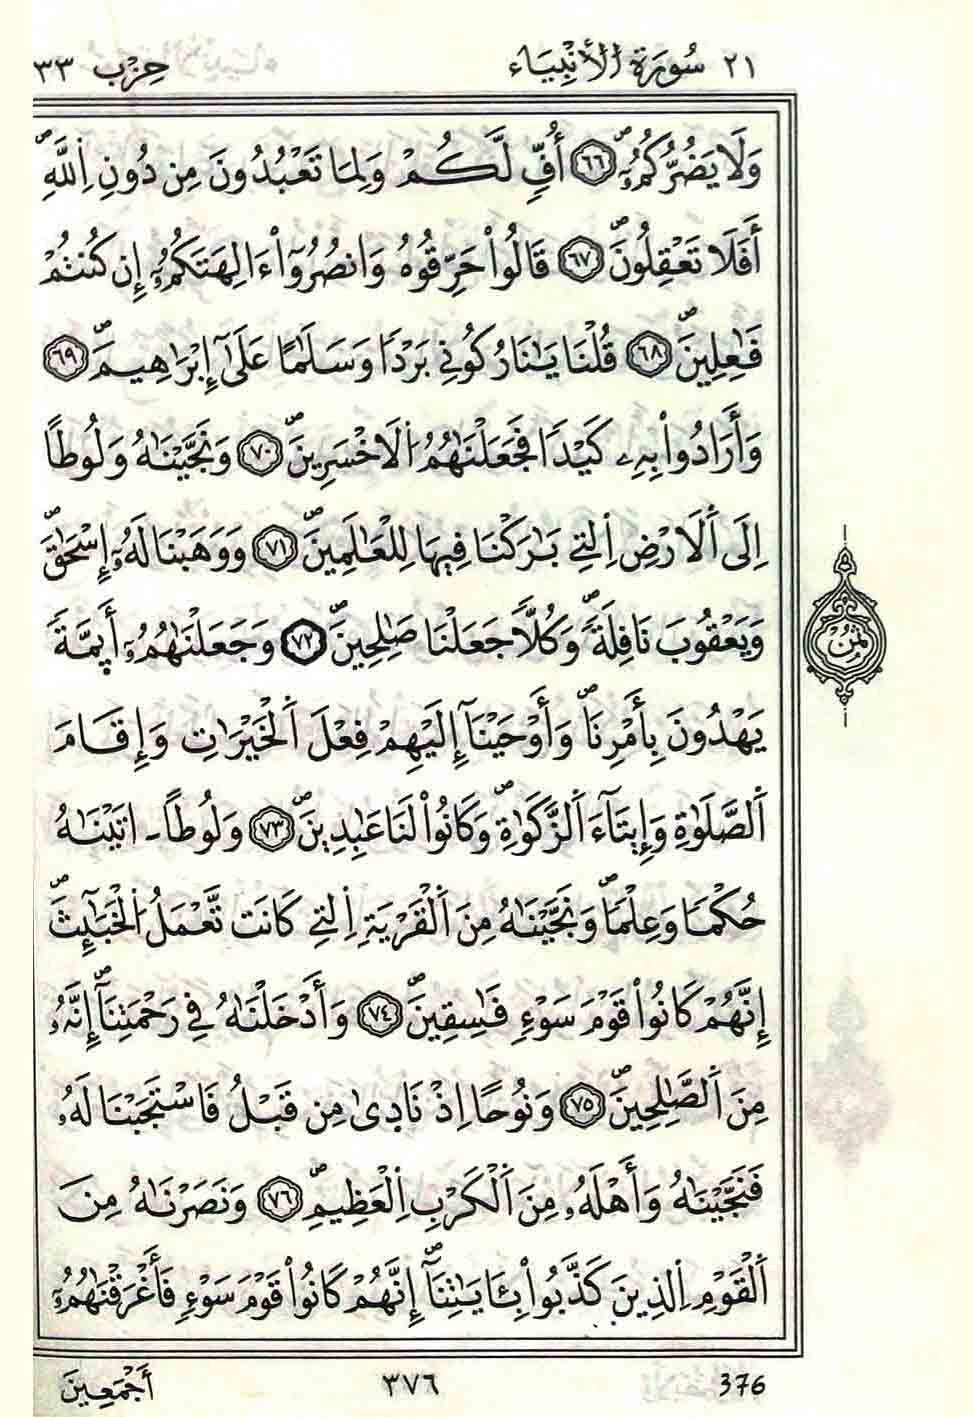 ٢١ سُورَةُ الأَنْبِيَاء حِزْب ٣٣
وَلَا يَضُرُّكُمُۥٓ ۖ ٦٦ أُفّٖ لَّكُمْ وَلِمَا تَعْبُدُونَ مِن دُونِ اِ۬للَّهِۖ
أَفَلَا تَعْقِلُونَۖ ٦٧ قَالُواْ حَرِّقُوهُ وَانصُرُوٓاْ ءَالِهَتَكُمُۥٓ إِن كُنتُمْ
فَٰعِلِينَۖ ٦٨ قُلْنَا يَٰنَارُ كُونِے بَرْداٗ وَسَلَٰماً عَلَىٰٓ إِبْرَٰهِيمَۖ ٦٩
وَأَرَادُواْ بِهِۦ كَيْداٗ فَجَعَلْنَٰهُمُ اُ۬لَاخْسَرِينَۖ ٧٠ وَنَجَّيْنَٰهُ وَلُوطاً
اِلَى اَ۬لَارْضِ اِ۬لتِے بَٰرَكْنَا فِيهَا لِلْعَٰلَمِينَۖ ٧١ وَوَهَبْنَا لَهُۥٓ إِسْحَٰقَۖ
وَيَعْقُوبَ نَافِلَةٗۖ وَكُلّاٗ جَعَلْنَا صَٰلِحِينَۖ ٧٢ وَجَعَلْنَٰهُمُۥٓ أَئِمَّةٗ
يَهْدُونَ بِأَمْرِنَاۖ وَأَوْحَيْنَآ إِلَيْهِمْ فِعْلَ اَ۬لْخَيْرَٰتِ وَإِقَامَ
اَ۬لصَّلَوٰةِ وَإِيتَآءَ اَ۬لزَّكَوٰةِۖ وَكَانُواْ لَنَا عَٰبِدِينَۖ ٧٣ وَلُوطاً ـ اتَيْنَٰهُ
حُكْماٗ وَعِلْماٗۖ وَنَجَّيْنَٰهُ مِنَ اَ۬لْقَرْيَةِ اِ۬لتِے كَانَت تَّعْمَلُ اُ۬لْخَبَٰٓئِثَۖ
إِنَّهُمْ كَانُواْ قَوْمَ سَوْءٖ فَٰسِقِينَۖ ٧٤ وَأَدْخَلْنَٰهُ فِے رَحْمَتِنَآۖ إِنَّهُۥ
مِنَ اَ۬لصَّٰلِحِينَۖ ٧٥ وَنُوحاً اِذْ نَادَىٰ مِن قَبْلُ فَاسْتَجَبْنَا لَهُۥ
فَنَجَّيْنَٰهُ وَأَهْلَهُۥ مِنَ اَ۬لْكَرْبِ اِ۬لْعَظِيمِۖ ٧٦ وَنَصَرْنَٰهُ مِنَ
اَ۬لْقَوْمِ اِ۬لذِينَ كَذَّبُواْ بِـَٔايَٰتِنَآۖ إِنَّهُمْ كَانُواْ قَوْمَ سَوْءٖ فَأَغْرَقْنَٰهُمُۥٓ
ثُمُن
أَجْمَعِينَ ٣٧٦ 376